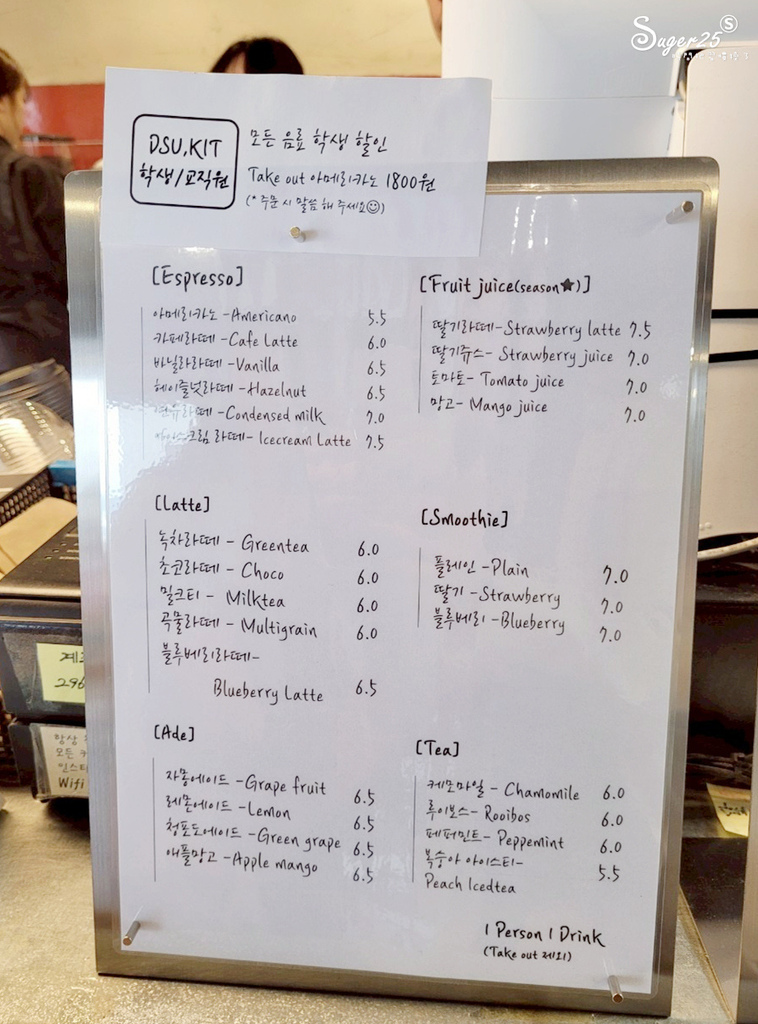 Suger25
DSU,KIT
학생/교직원
모든 음료 학생 할인
Take out 아메리카노 1800원
(* 주문 시 말씀 해 주세요☺)
[Espresso]
아메리카노 - Americano 5.5
카페라떼 - Cafe Latte 6.0
바닐라라떼 - Vanilla 6.5
헤이즐넛라떼 - Hazelnut 6.5
연유라떼 - Condensed milk 7.0
아이스크림 라떼 - Icecream Latte 7.5
[Fruit juice(season★)]
딸기라떼 - Strawberry latte 7.5
딸기쥬스 - Strawberry juice 7.0
토마토 - Tomato juice 7.0
망고 - Mango juice 7.0
[Latte]
녹차라떼 - Greentea 6.0
초코라떼 - Choco 6.0
밀크티 - Milktea 6.0
곡물라떼 - Multigrain 6.0
블루베리라떼 -
Blueberry Latte 6.5
[Smoothie]
플레인 - Plain 7.0
딸기 - Strawberry 7.0
블루베리 - Blueberry 7.0
[Ade]
자몽에이드 - Grape fruit 6.5
레몬에이드 - Lemon 6.5
청포도에이드 - Green grape 6.5
애플망고 - Apple mango 6.5
[Tea]
케모마일 - Chamomile 6.0
루이보스 - Rooibos 6.0
페퍼민트 - Peppemint 6.0
복숭아 아이스티 - 5.5
Peach Icedtea
1 Person 1 Drink
(Take out 제외)
296
항상
모든
Wifi